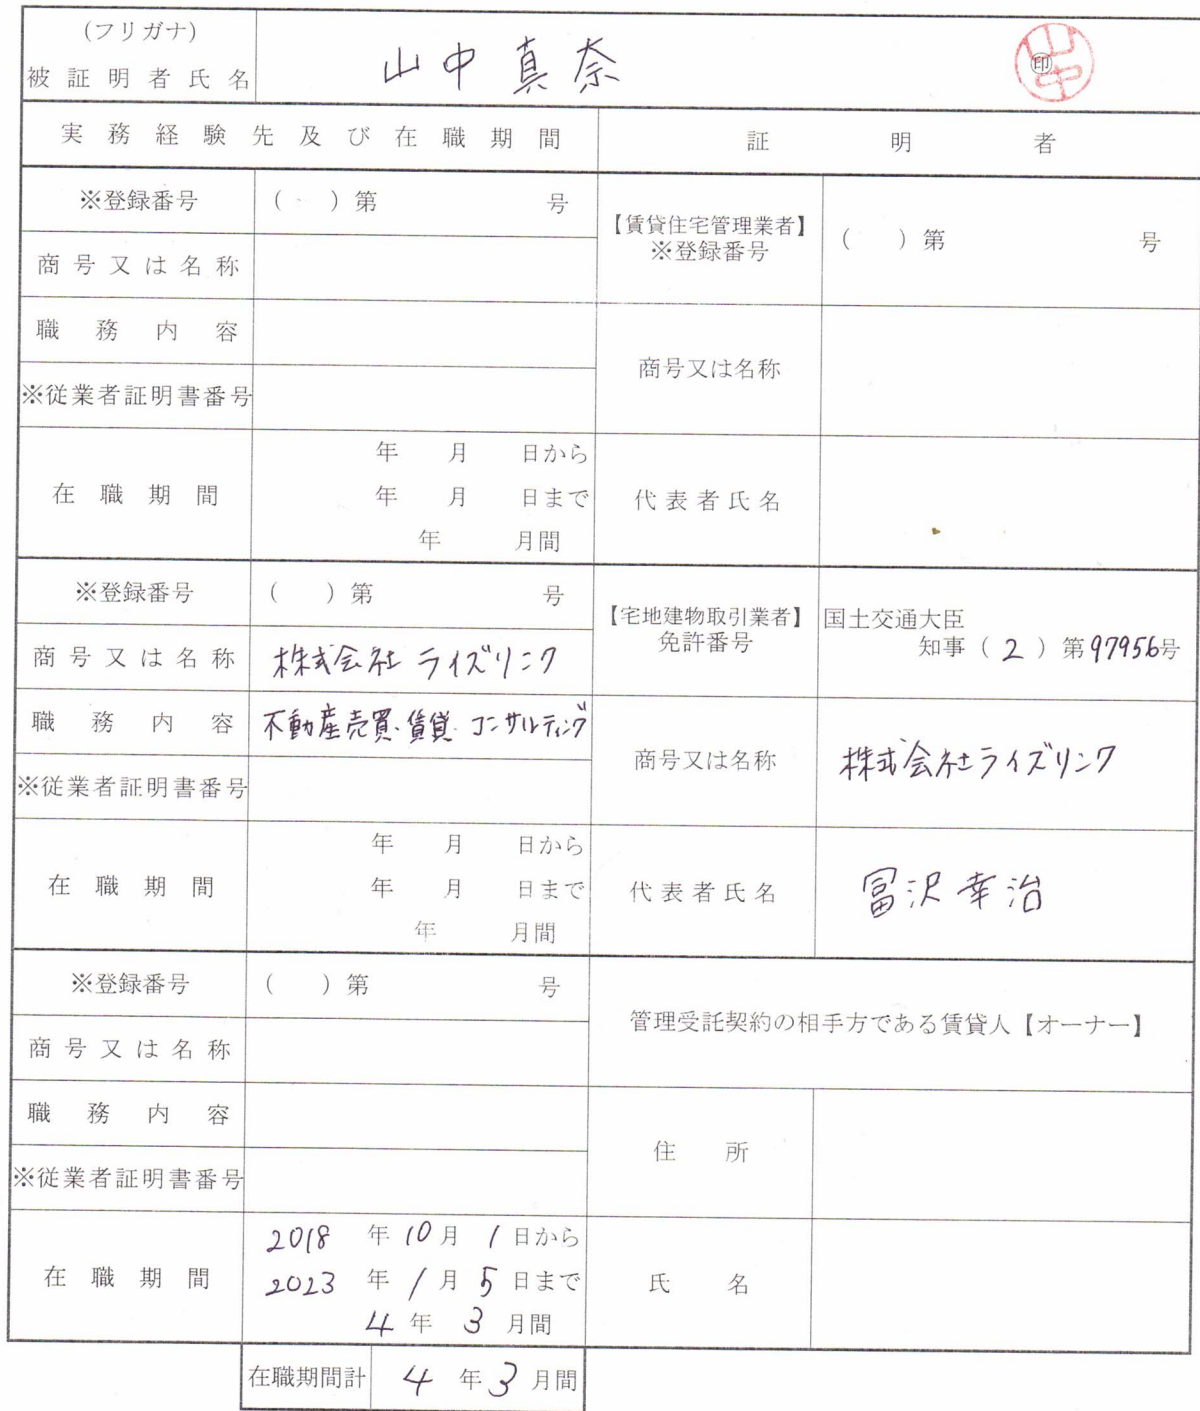 (フリガナ)
被証明者氏名 山中真奈 ㊞ 山中
実務経験先及び在職期間 証明者
※登録番号 ( ) 第 号
商号又は名称
職務内容
※従業者証明書番号
在職期間
年 月 日から
年 月 日まで
年 月間
【賃貸住宅管理業者】
※登録番号
( ) 第 号
商号又は名称
代表者氏名
※登録番号 ( ) 第 号
商号又は名称 株式会社ライズリンク
職務内容 不動産売買・賃貸・コンサルティング
※従業者証明書番号
在職期間
年 月 日から
年 月 日まで
年 月間
【宅地建物取引業者】
免許番号
国土交通大臣
知事 ( 2 ) 第97956号
商号又は名称 株式会社ライズリンク
代表者氏名 冨沢幸治
※登録番号 ( ) 第 号
商号又は名称
職務内容
※従業者証明書番号
在職期間
2018年10月1日から
2023年1月5日まで
4年3月間
管理受託契約の相手方である賃貸人【オーナー】
住所
氏名
在職期間計 4年3月間